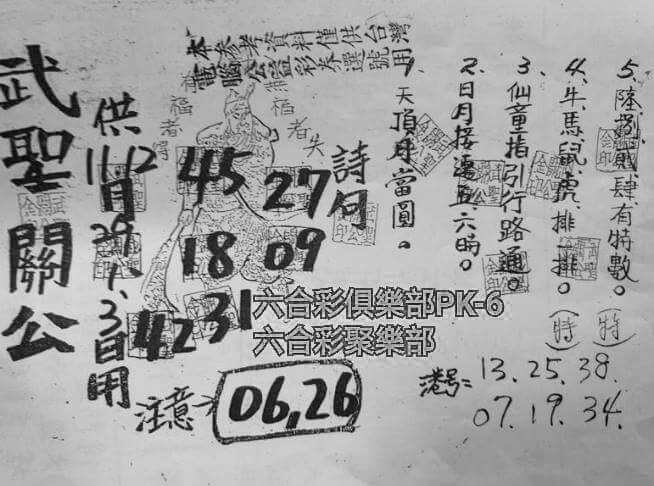 本參考資料僅供台灣
電腦公益彩券選號用
武聖關公
供
11月29、
12 1、3日用
有福者得
無福者失
45 27
18 09
42 31
詩句
1、天頂月當圓。
2、日月接連五六時。
3、仙童指引行路通。
4、牛馬鼠虎排一排。(特)
5、陸 貳肆有特數。(特)
注意→ 06,26
港号= 13.25.38.
07.19.34.
六合彩俱樂部PK-6
六合彩聚樂部